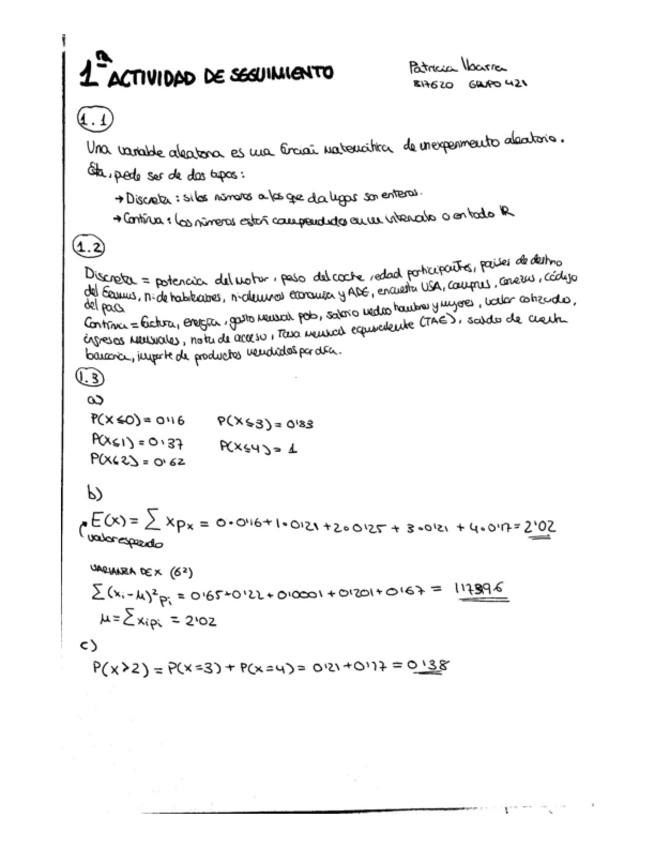 1ª ACTIVIDAD DE SEGUIMIENTO
Patricia Ibarra
817620 GRUPO 421
1.1
Una variable aleatoria es una función matemática de un experimento aleatorio.
Esta, puede ser de dos tipos:
→ Discreta: si los números a los que da lugar son enteros.
→ Continua: los números están comprendidos en un intervalo o en todo ℝ
1.2
Discreta = potencia del motor, peso del coche, edad participantes, países de destino
del Erasmus, n. de habitaciones, n. alumnos economía y ADE, encuesta USA, campus, código
del país
Continua = factura, energía, gasto mensual, salario medio hombres y mujeres, valor cotizado,
ingresos mensuales, nota de acceso, Tasa mensual equivalente (TAE), saldo de cuenta
bancaria, importe de productos vendidos por día.
1.3
a)
P(X≤0) = 0'16 P(X≤3) = 0'83
P(X≤1) = 0'37 P(X≤4) = 1
P(X≤2) = 0'62
b)
E(X) = ∑ x px = 0·0'16+1·0'21+2·0'25+3·0'21+4·0'17=2'02
valor esperado
VARIANZA DE X (σ²)
∑(xi-μ)² pi = 0'65+0'22+0'0001+0'201+0'67 = 1'7396
μ=∑xipi = 2'02
c)
P(X>2) = P(X=3) + P(X=4) = 0'21+0'17 = 0'38